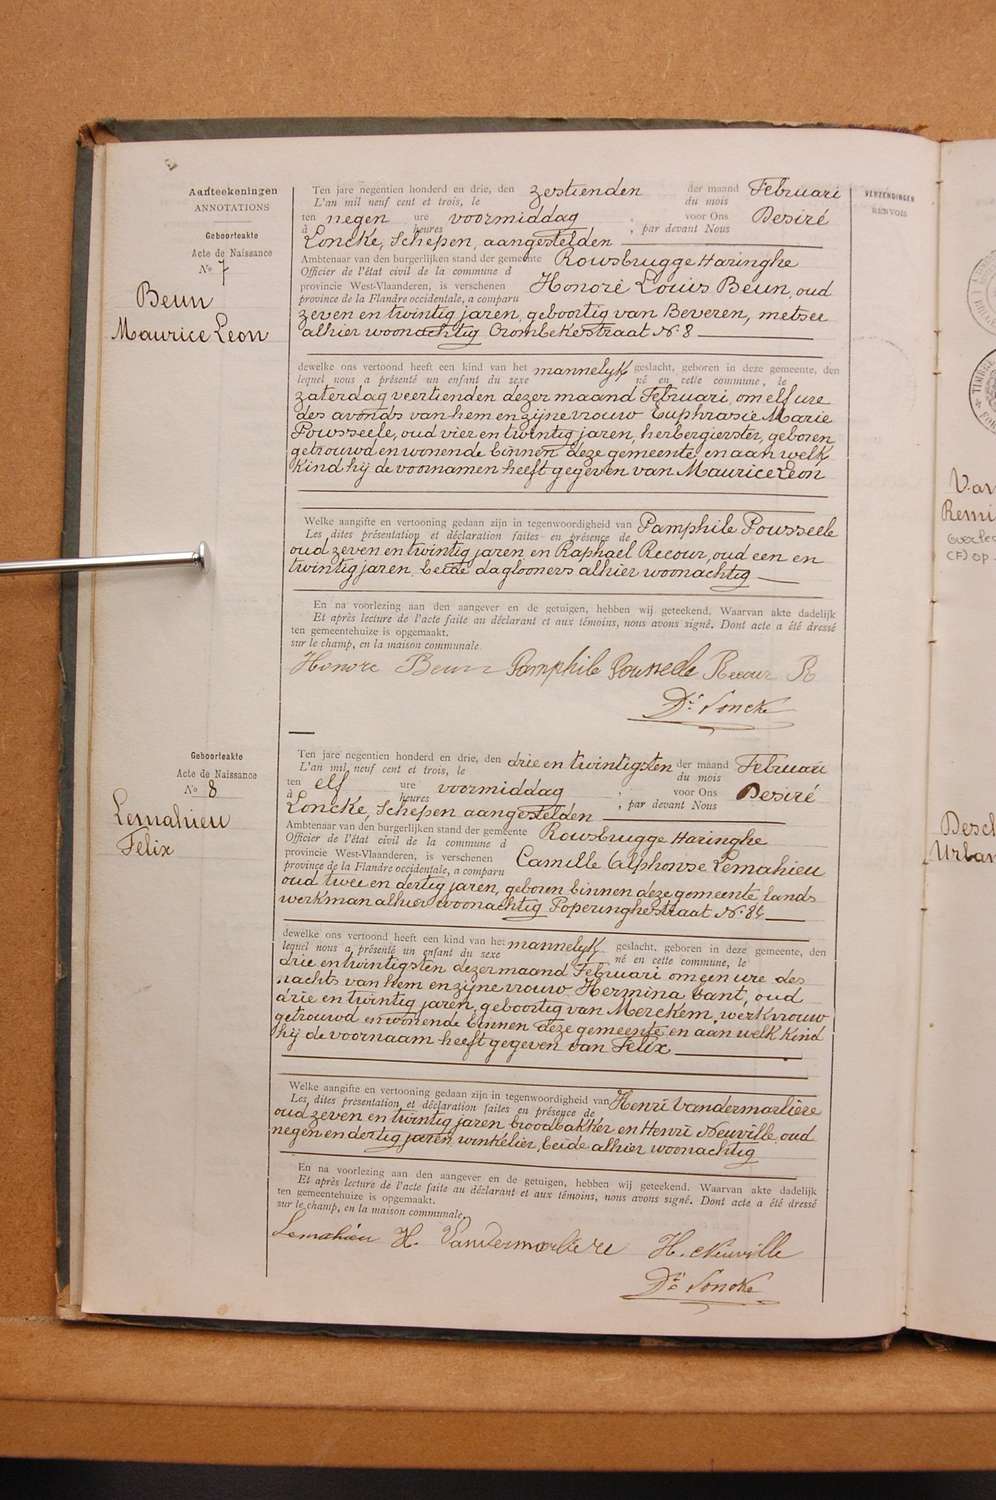 Aanteekeningen
ANNOTATIONS
Geboorteakte
Acte de Naissance
Nº 7
Beun
Maurice Leon
Ten jare negentien honderd en drie, den zestienden der maand Februari
L'an mil neuf cent et trois, le du mois
ten negen ure voormiddag ; voor Ons Desiré
à heures ; par devant Nous
Loncke, Schepen, aangestelden
Ambtenaar van den burgerlijken stand der gemeente Rousbrugge Haringhe
Officier de l'état civil de la commune d
provincie West-Vlaanderen, is verschenen Honoré Louis Beun, oud
province de la Flandre occidentale, a comparu
zeven en twintig jaren, geboortig van Beveren, metser
alhier woonachtig Crombekestraat Nº 8
dewelke ons vertoond heeft een kind van het mannelyk geslacht, geboren in deze gemeente, den
lequel nous a présenté un enfant du sexe né en cette commune, le
zaterdag veertienden dezer maand Februari, om elf ure
des avonds van hem en zijne vrouw Euphrasie Marie
Pousseele, oud vier en twintig jaren, herbergierster, geboren
getrouwd en wonende binnen deze gemeente, en aan welk
kind hij de voornamen heeft gegeven van Maurice Leon
Welke aangifte en vertooning gedaan zijn in tegenwoordigheid van Pamphile Pousseele
Les dites présentation et déclaration faites en présence de
oud zeven en twintig jaren en Raphaël Recour, oud een en
twintig jaren, beide daglooners alhier woonachtig
En na voorlezing aan den aangever en de getuigen, hebben wij geteekend. Waarvan akte dadelijk
Et après lecture de l'acte faite au déclarant et aux témoins, nous avons signé. Dont acte a été dressé
ten gemeentehuize is opgemaakt.
sur le champ, en la maison communale.
Honore Beun Pamphile Pousseele Recour R
Dé Loncke
Geboorteakte
Acte de Naissance
Nº 8
Lemahieu
Felix
Ten jare negentien honderd en drie, den drie en twintigsten der maand Februari
L'an mil neuf cent et trois, le du mois
ten elf ure voormiddag ; voor Ons Desiré
à heures ; par devant Nous
Loncke, Schepen aangestelden
Ambtenaar van den burgerlijken stand der gemeente Rousbrugge Haringhe
Officier de l'état civil de la commune d
provincie West-Vlaanderen, is verschenen Camille Alphonse Lemahieu
province de la Flandre occidentale, a comparu
oud twee en dertig jaren, geboren binnen deze gemeente, lands
werkman alhier woonachtig Poperinghestraat Nº 84
dewelke ons vertoond heeft een kind van het mannelyk geslacht, geboren in deze gemeente, den
lequel nous a présenté un enfant du sexe né en cette commune, le
drie en twintigsten dezer maand Februari om een ure des
nachts van hem en zijne vrouw Hermina Cant, oud
drie en twintig jaren, geboortig van Merckem, werkvrouw
getrouwd en wonende binnen deze gemeente en aan welk kind
hij de voornaam heeft gegeven van Felix
Welke aangifte en vertooning gedaan zijn in tegenwoordigheid van Henri Vandermarliere
Les dites présentation et déclaration faites en présence de
oud zeven en twintig jaren broodbakker en Henri Neuville, oud
negen en dertig jaren, winkelier, beide alhier woonachtig
En na voorlezing aan den aangever en de getuigen, hebben wij geteekend. Waarvan akte dadelijk
Et après lecture de l'acte faite au déclarant et aux témoins, nous avons signé. Dont acte a été dressé
ten gemeentehuize is opgemaakt.
sur le champ, en la maison communale.
Lemahieu H. Vandermarliere H. Neuville
Dé Loncke
VERZENDINGEN
RENVOIS
Van
Remi
(F) op
Desch
Urban